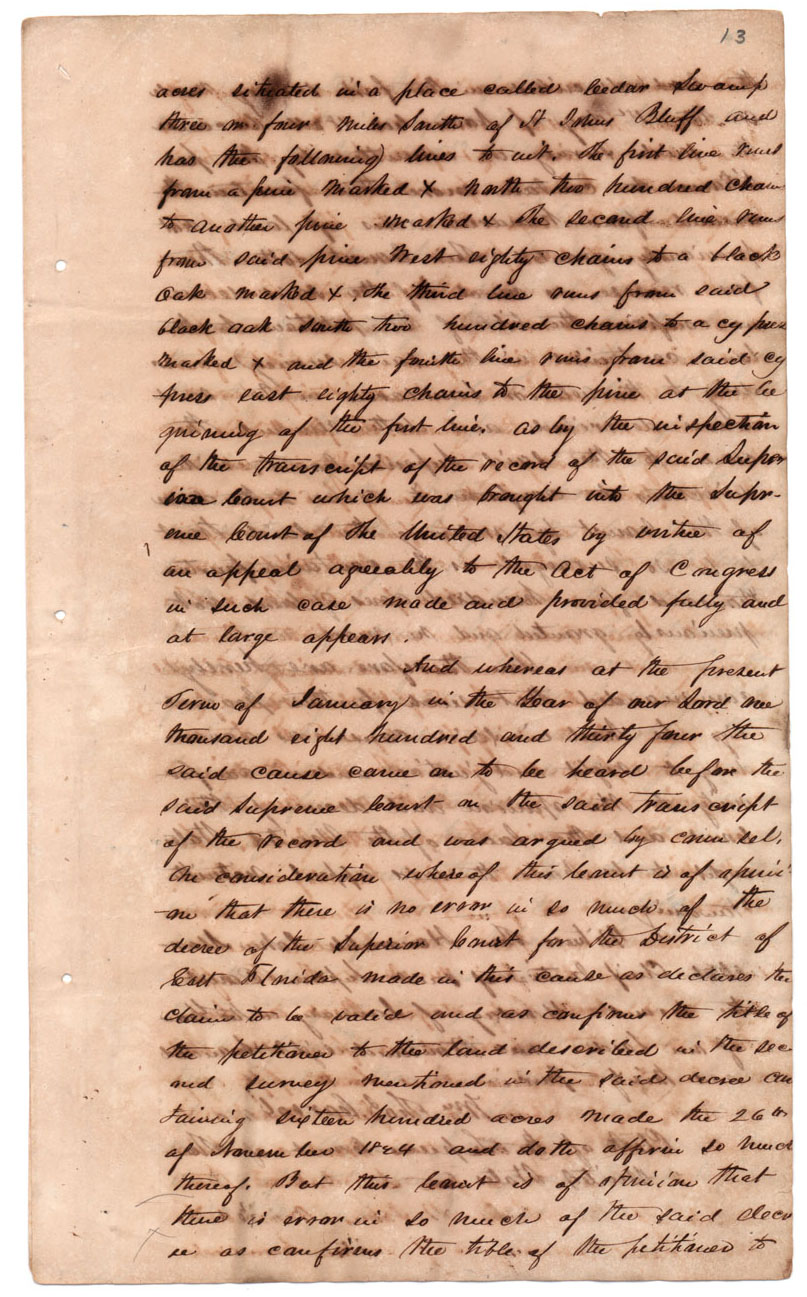 13
acres situated in a place called Cedar Swamp
three or four miles South of St Johns Bluff and
has the following lines to wit. The first line runs
from a pine marked X North two hundred chain
to another pine marked X The second line runs
from said pine West eighty chains to a black
oak marked X, the third line runs from said
black oak south two hundred chains to a cy press
marked X and the fourth line runs from said cy
press east eighty chains to the pine at the be
ginning of the first line. as by the inspection
of the transcript of the record of the said Super
ior Court which was brought into the Supr-
eme Court of the United States by virtue of
an appeal agreeably to the Act of Congress
in such case made and provided fully and
at large appears.
And whereas at the present
Term of January in the Year of our Lord one
thousand eight hundred and thirty four the
said cause came on to be heard before the
said Supreme Court on the said transcript
of the record and was argued by counsel.
On consideration whereof this Court is of opini-
on that there is no error in so much of the
decree of the Superior Court for the District of
East Florida made in this cause as declares the
claim to be valid and as confirms the title of
the petitioner to the land described in the sec
ond survey mentioned in the said decree con
taining sixteen hundred acres made the 26th
of November 1824 and doth affirm so much
thereof. But this Court is of opinion that
there is error in so much of the said decr
ee as confirms the title of the petitioner to